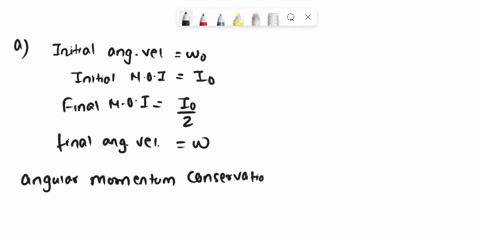 a) Initial ang. vel = ω₀
Initial M.O.I = I₀
Final M.O.I = I₀/2
final ang vel. = ω
angular momentum conservatio